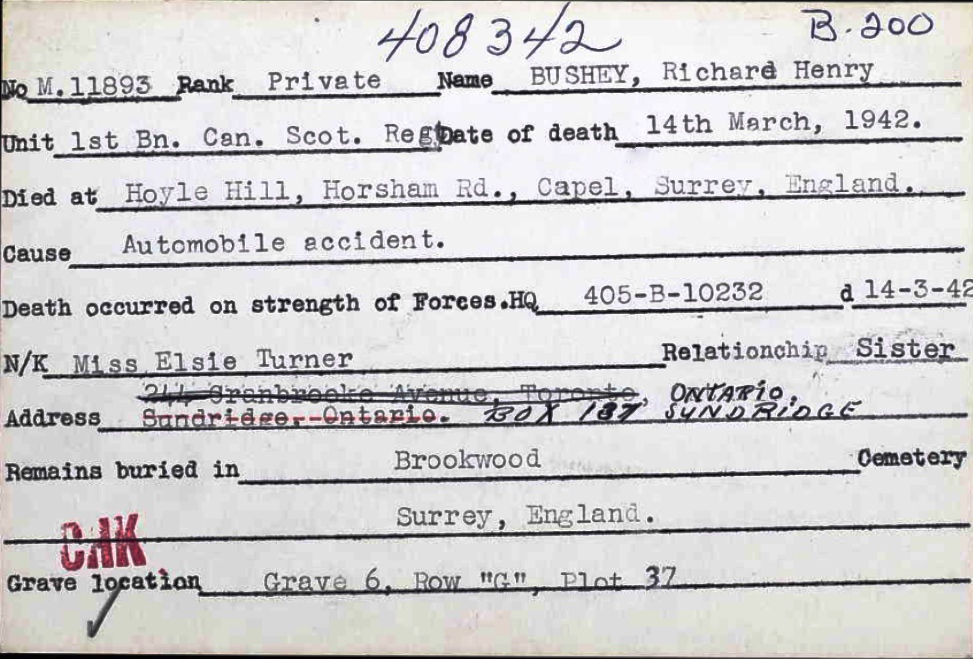 408342 B-200
No M.11893 Rank Private Name BUSHEY, Richard Henry
Unit 1st Bn. Can. Scot. Regt Date of death 14th March, 1942.
Died at Hoyle Hill, Horsham Rd., Capel, Surrey, England.
Cause Automobile accident.
Death occurred on strength of Forces.HQ 405-B-10232 d 14-3-42
N/K Miss Elsie Turner Relationship Sister
244 Cranbrooke Avenue, Toronto, ONTARIO,
Address Sundridge, Ontario. BOX 187 SUNDRIDGE
Remains buried in Brookwood Cemetery
Surrey, England.
Grave location Grave 6, Row "G", Plot 37